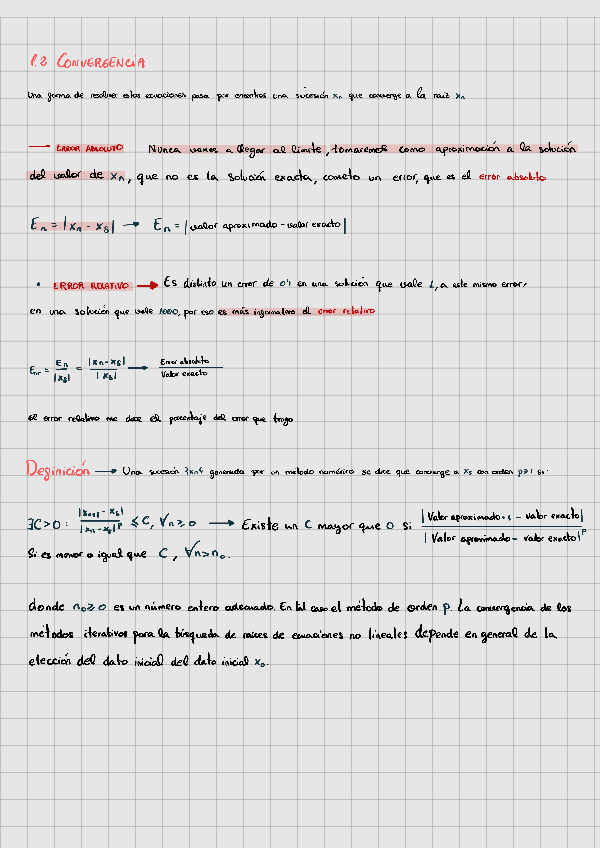 1.2 CONVERGENCIA
Una forma de resolver estas ecuaciones pasa por encontrar una sucesión xₙ que converge a la raíz xₙ
→ ERROR ABSOLUTO Nunca vamos a llegar al límite, tomaremos como aproximación a la solución
del valor de xₙ, que no es la solución exacta, cometo un error, que es el error absoluto
Eₙ = |xₙ - xₛ| → Eₙ = |valor aproximado - valor exacto|
• ERROR RELATIVO → Es distinto un error de 0'1 en una solución que vale 1, a este mismo error,
en una solución que vale 1000, por eso es más informativo el error relativo
Eₙᵣ = Eₙ / |xₛ| = |xₙ - xₛ| / |xₛ| → Error absoluto / Valor exacto
el error relativo me dice el porcentaje del error que tengo
Definición → Una sucesión {xₙ} generada por un metodo numérico se dice que converge a xₛ con orden p≥1 si:
∃C>0 : |xₙ₊₁ - xₛ| / |xₙ - xₛ|ᵖ ≤ C, ∀n ≥ 0 → Existe un C mayor que 0 si |Valor aproximado+1 - valor exacto| / |Valor aproximado - valor exacto|ᵖ
Si es menor o igual que C, ∀n>n₀.
donde n₀≥0 es un número entero adecuado. En tal caso el método de orden p. La convergencia de los
métodos iterativos para la búsqueda de raíces de ecuaciones no lineales depende en general de la
elección del dato inicial del dato inicial x₀.